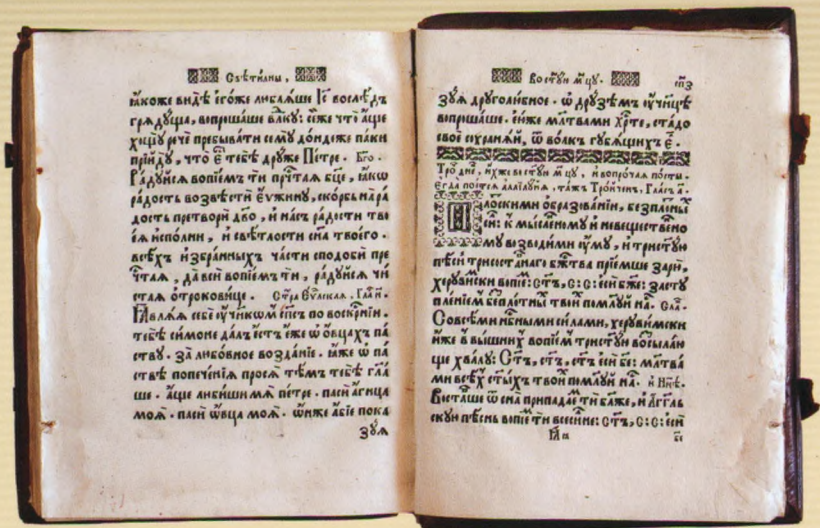 Свѣти́лны,
ꙗ҆́коже ви́дѣ є҆го́же любля́ше І҆с҃ вослѣ́дъ
гряду́ща, вопроша́ше влⷣку: се́же что̀ а҆́ще
хощꙋ̀ речѐ пребыва́ти семꙋ̀ до́ндеже па́ки
прїидꙋ̀, что̀ є҆́ тебѣ̀ дрꙋ́же Пе́тре. Бг҃о.
Ра́дꙋйся вопїе́мъ ти прⷱ҇тая бц҃е, ꙗ҆́кѡ
ра́дость возвѣстѝ Є҆́ѵжинꙋ, ско́рбь на ра́
дость претворѝ дв҃о, и҆ на́съ ра́дости тво
є҆я̀ и҆спо́лни, и҆ свѣ́тлости сн҃а твоего̀.
всѣ́хъ и҆збра́нныхъ ча́сти сподо́би пре
чⷭ҇тая, да всѝ вопїе́мъ ти, ра́дꙋйся чи́
стая ѻ҆трокови́це. Стⷯра Є҆ѵⷢ҇лская, Гла́ и҃.
Ꙗ҆вля́я себѐ ᲂу҆ченикѡ́мⷨ сп҃съ по воскрⷭ҇нїи.
тебѣ̀ си́моне да́лъ є҆́стъ є҆́же ѡ҆ ѻ҆вца́хъ па́
ствꙋ. за любо́вное воздая́нїе. ꙗ҆́же ѡ҆ па́
ствѣ попече́нїя прося̀ тѣ́мъ тебѣ̀ гл҃а
ше. а҆́ще лю́биши мя̀ пе́тре. пасѝ а҆́гнца
моя̀. пасѝ ѻ҆́вца моя̀. ѻ҆́нже а҆́бїе пока
зꙋ́я
Востꙋⷩ҇ мⷣцꙋ.
сп҃з
зꙋ́я дрꙋголю́бное. ѡ҆ дрꙋзѣ́мъ ᲂу҆чн҃цѣ
вопроша́ше. є҆́йже мл҃твами хрⷭ҇те, ста́до
своѐ сохраня́й, ѿ во́лкъ гꙋбя́щихъ є҆̀.
Тро́ⷱ҇ днѐⷡ, и҆́хже в встꙋⷫ҇ мⷣцꙋ, и҆ вопро́чая по́сты.
Є҆гда̀ пое́тся а҆лилꙋ́їя, та́жъ Тро́йчен, Гла́съ а҃.
Пло́скими ѻ҆бразова́нїи, безпло́тныⷯ
си́: к мы́сленомꙋ и҆ невещество́но
мꙋ возводи́ми ᲂу҆мꙋ̀, и҆ тристꙋ́ю
пѣ́сни трисоста́внаго бж҃тва прїе́мше зарѝ,
херꙋви́мски вопїе́ⷨ: ст҃ъ, с: с: є҆сѝ бж҃е: застꙋ
пле́нїемъ безпло́тныⷯ твои́ⷯ поми́лꙋй на́ⷭ. Сла́ⷡ.
Со всѣ́ми нб҃ными си́лами, херꙋви́мски
и҆́же в вы́шниⷯ вопїе́мъ тристꙋ́ю возсыла́ю
ще хвалꙋ̀: Ст҃ъ, ст҃ъ, ст҃ъ є҆сѝ бж҃е: мл҃тва
ми всѣ́ⷯ ст҃ы́хъ твои́ⷯ поми́лꙋй на́ⷭ. и҆ Нн҃ѣ.
Воста́вше ѿ сна̀ припа́даеⷨ ти бл҃же, и҆ а҆́гг҃ль
скꙋю пѣ́снь вопїе́ⷨ ти всеси́лне: ст҃ъ, с: с: є҆сѝ
бж҃е